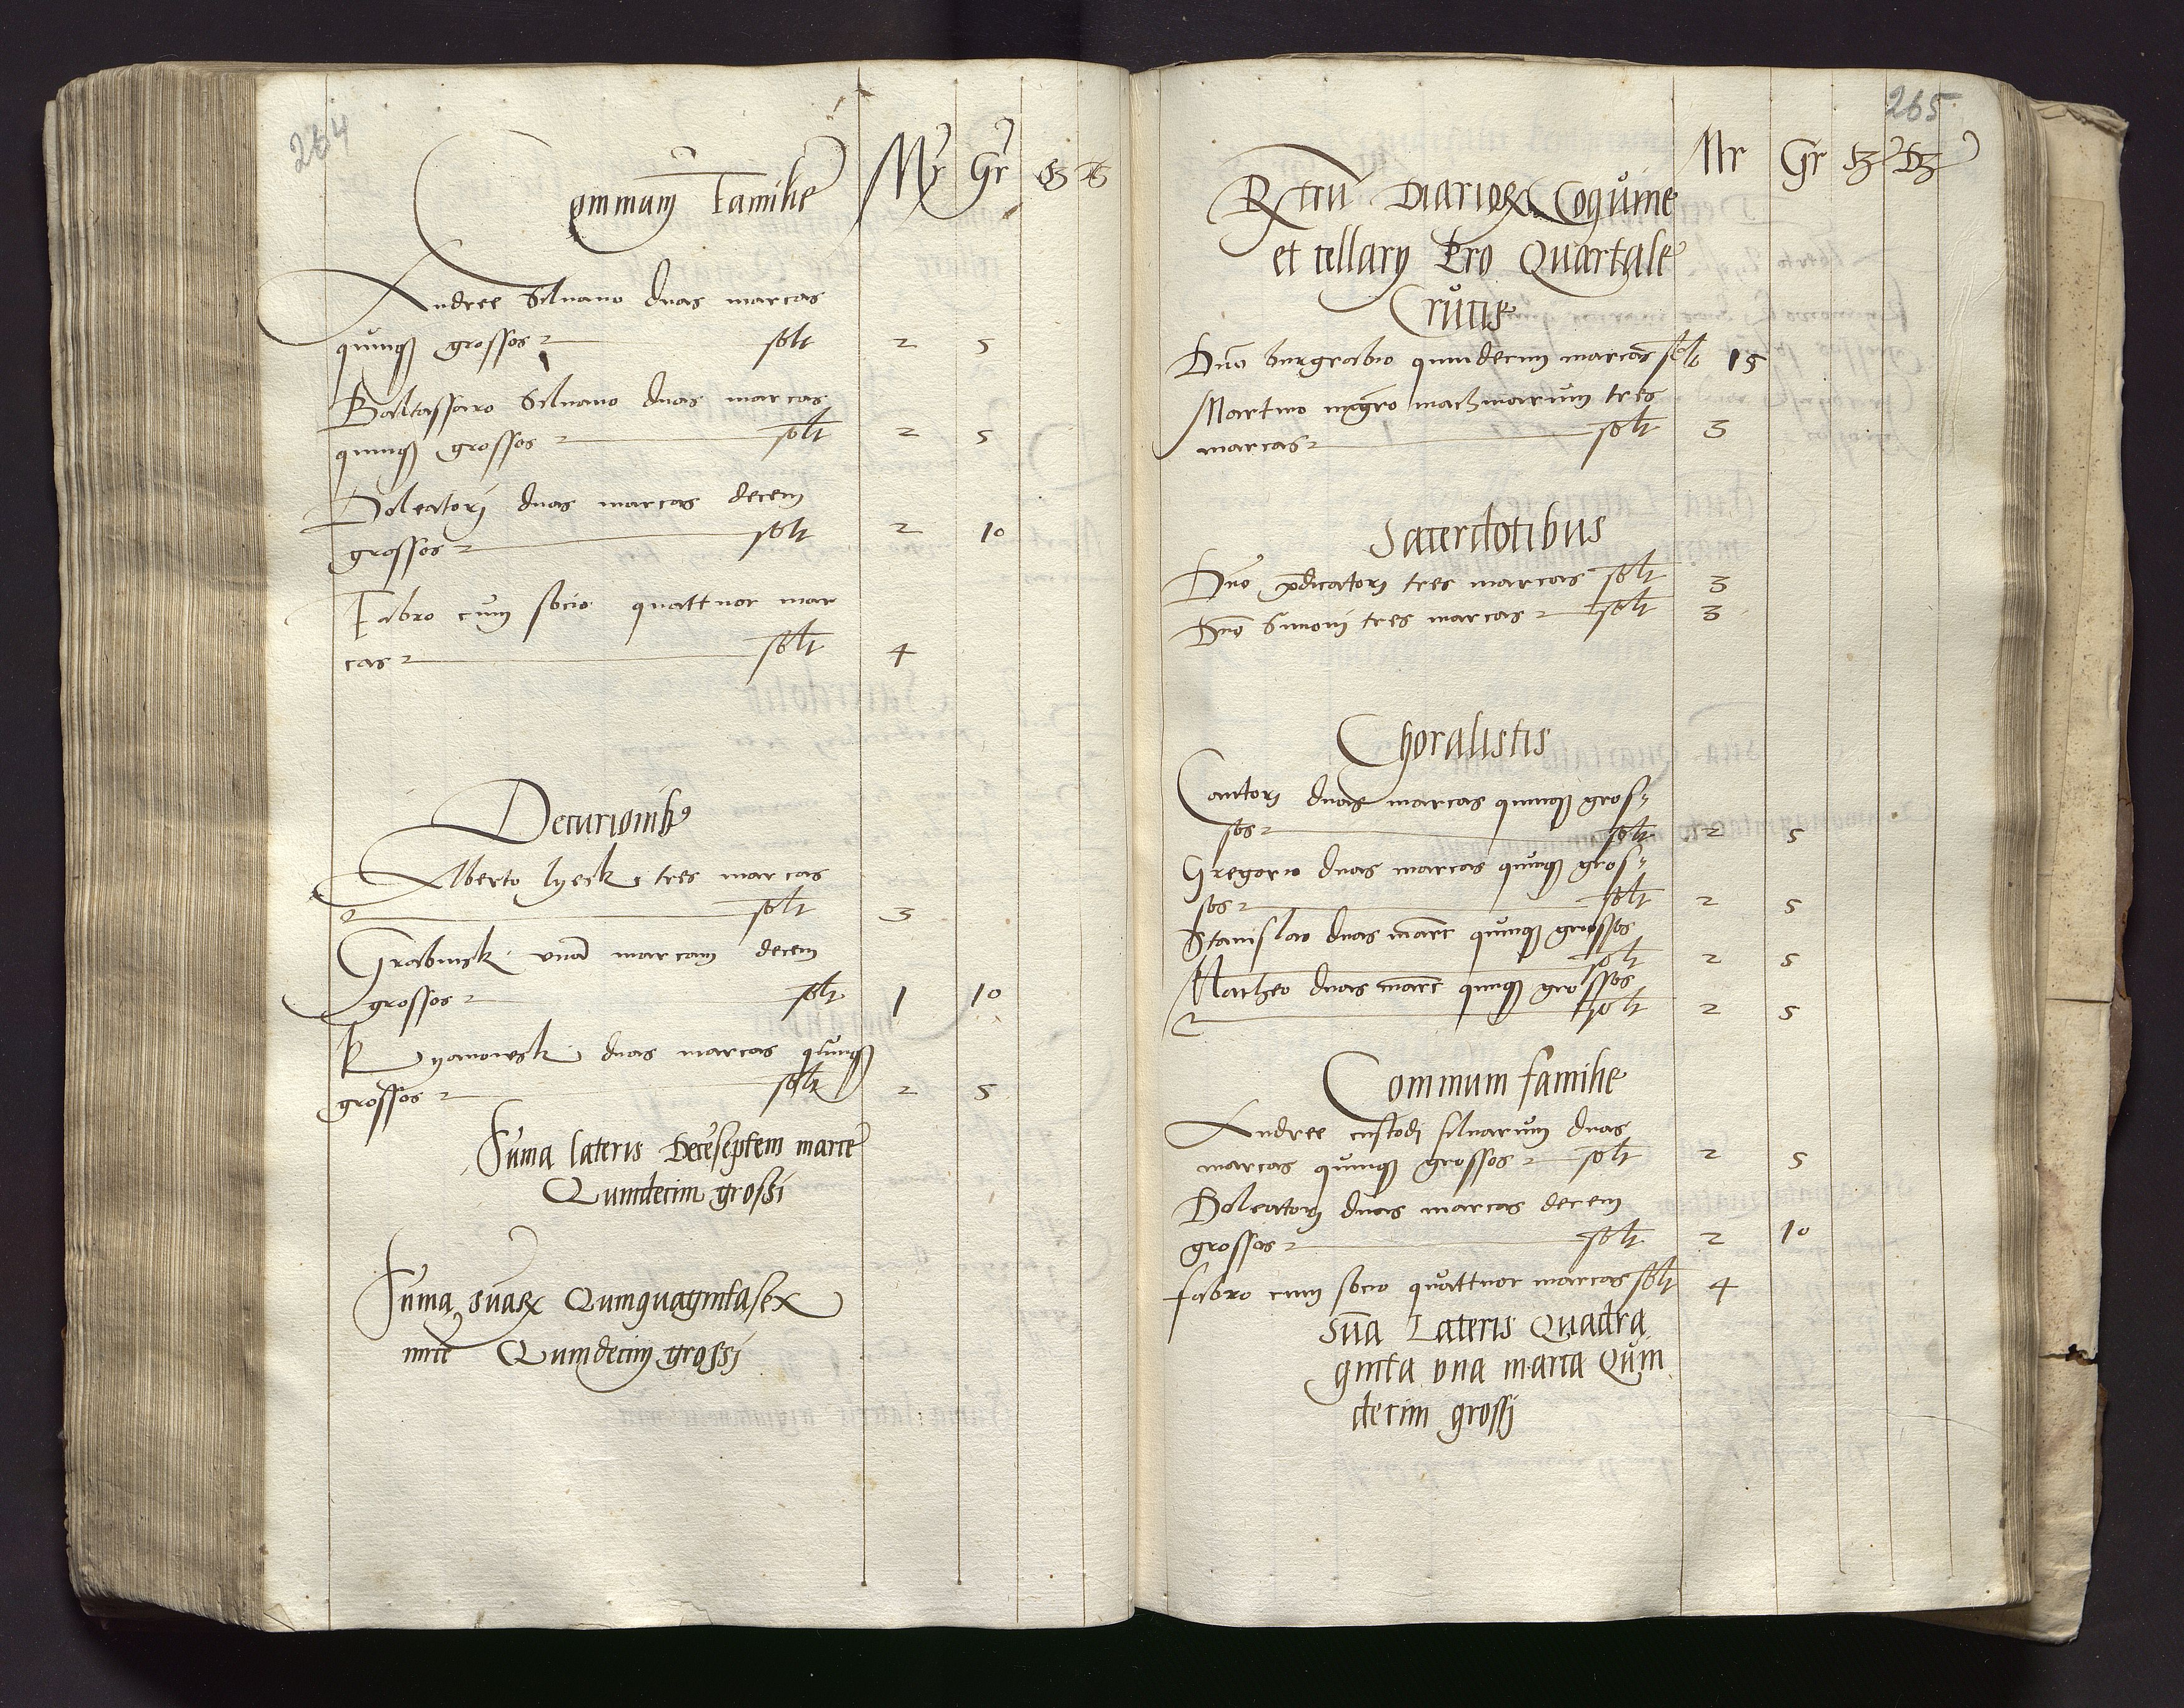 264
Mr Gr ß ß
Commuни Familie
Andree Siluano duas marcas
quinqȝ grossos solt 2 5
Baltassaro Siluano duas marcas
quinqȝ grossos solt 2 5
Doleatorj duas marcas decem
grossos solt 2 10
Fabro cum socio quattuor mar
cas solt 4
Decurionibꝰ
Alberto lyesk tres marcas
solt 3
Grabinsk unā marcam decem
grossos solt 1 10
Kyanowsk duas marcas quinqȝ
grossos solt 2 5
Suma lateris Deceseptem marce
Quindecim grossi
Suma suaꝝ Quinquagintasex
mrce Quindecim grossj
265
Mr Gr ß ß
Rxtrū Diarioꝝ Coquine
et cellary Pro Quartale
Crucis
Dno burgrabio quindecim marcas solt 15
Martino mgro machinarum tres
marcas solt 3
Sacerdotibus
Dno pdicatorj tres marcas solt 3
Dno Simonj tres marcas solt 3
Choralistis
Cantorj duas marcas quinqȝ gros
sos solt 2 5
Gregorio duas marcas quinqȝ gros
sos solt 2 5
Stanislao duas marc quinqȝ grossos
solt 2 5
Matheo duas marc quinqȝ grossos
solt 2 5
Commum familie
Andree custodj siluarum duas
marcas quinqȝ grossos solt 2 5
Doleatorj duas marcas decem
grossos solt 2 10
fabro cum socio quattuor marcas solt 4
Sūa Lateris Quadra
ginta una marca Quin
decim grossj